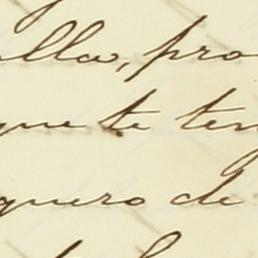 ella, pro
que te ten
quero de